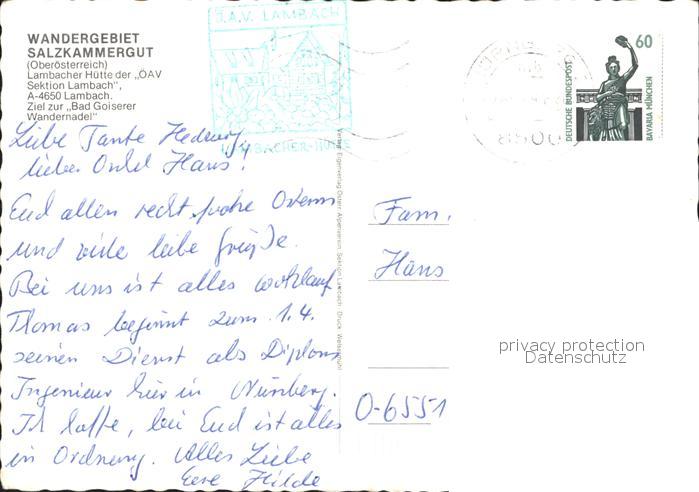 WANDERGEBIET
SALZKAMMERGUT
(Oberösterreich)
Lambacher Hütte der „ÖAV
Sektion Lambach",
A-4650 Lambach.
Ziel zur „Bad Goiserer
Wandernadel"
Ö.A.V. LAMBACH
LAMBACHER-HÜTTE
8500
60
DEUTSCHE BUNDESPOST
BAVARIA MÜNCHEN
Liebe Tante Hedwig,
lieber Onkel Hans!
Euch allen recht frohe Ostern
und viele liebe Grüße.
Bei uns ist alles wohlauf
Thomas beginnt zum 1.4.
seinen Dienst als Diplom
Ingenieur hier in Nürnberg.
Ich hoffe, bei Euch ist alles
in Ordnung. Alles Liebe
Eure Hilde
Verlag: Eigenverlag Österr. Alpenverein, Sektion Lambach
Fam.
Hans
O-6551
privacy protection
Datenschutz